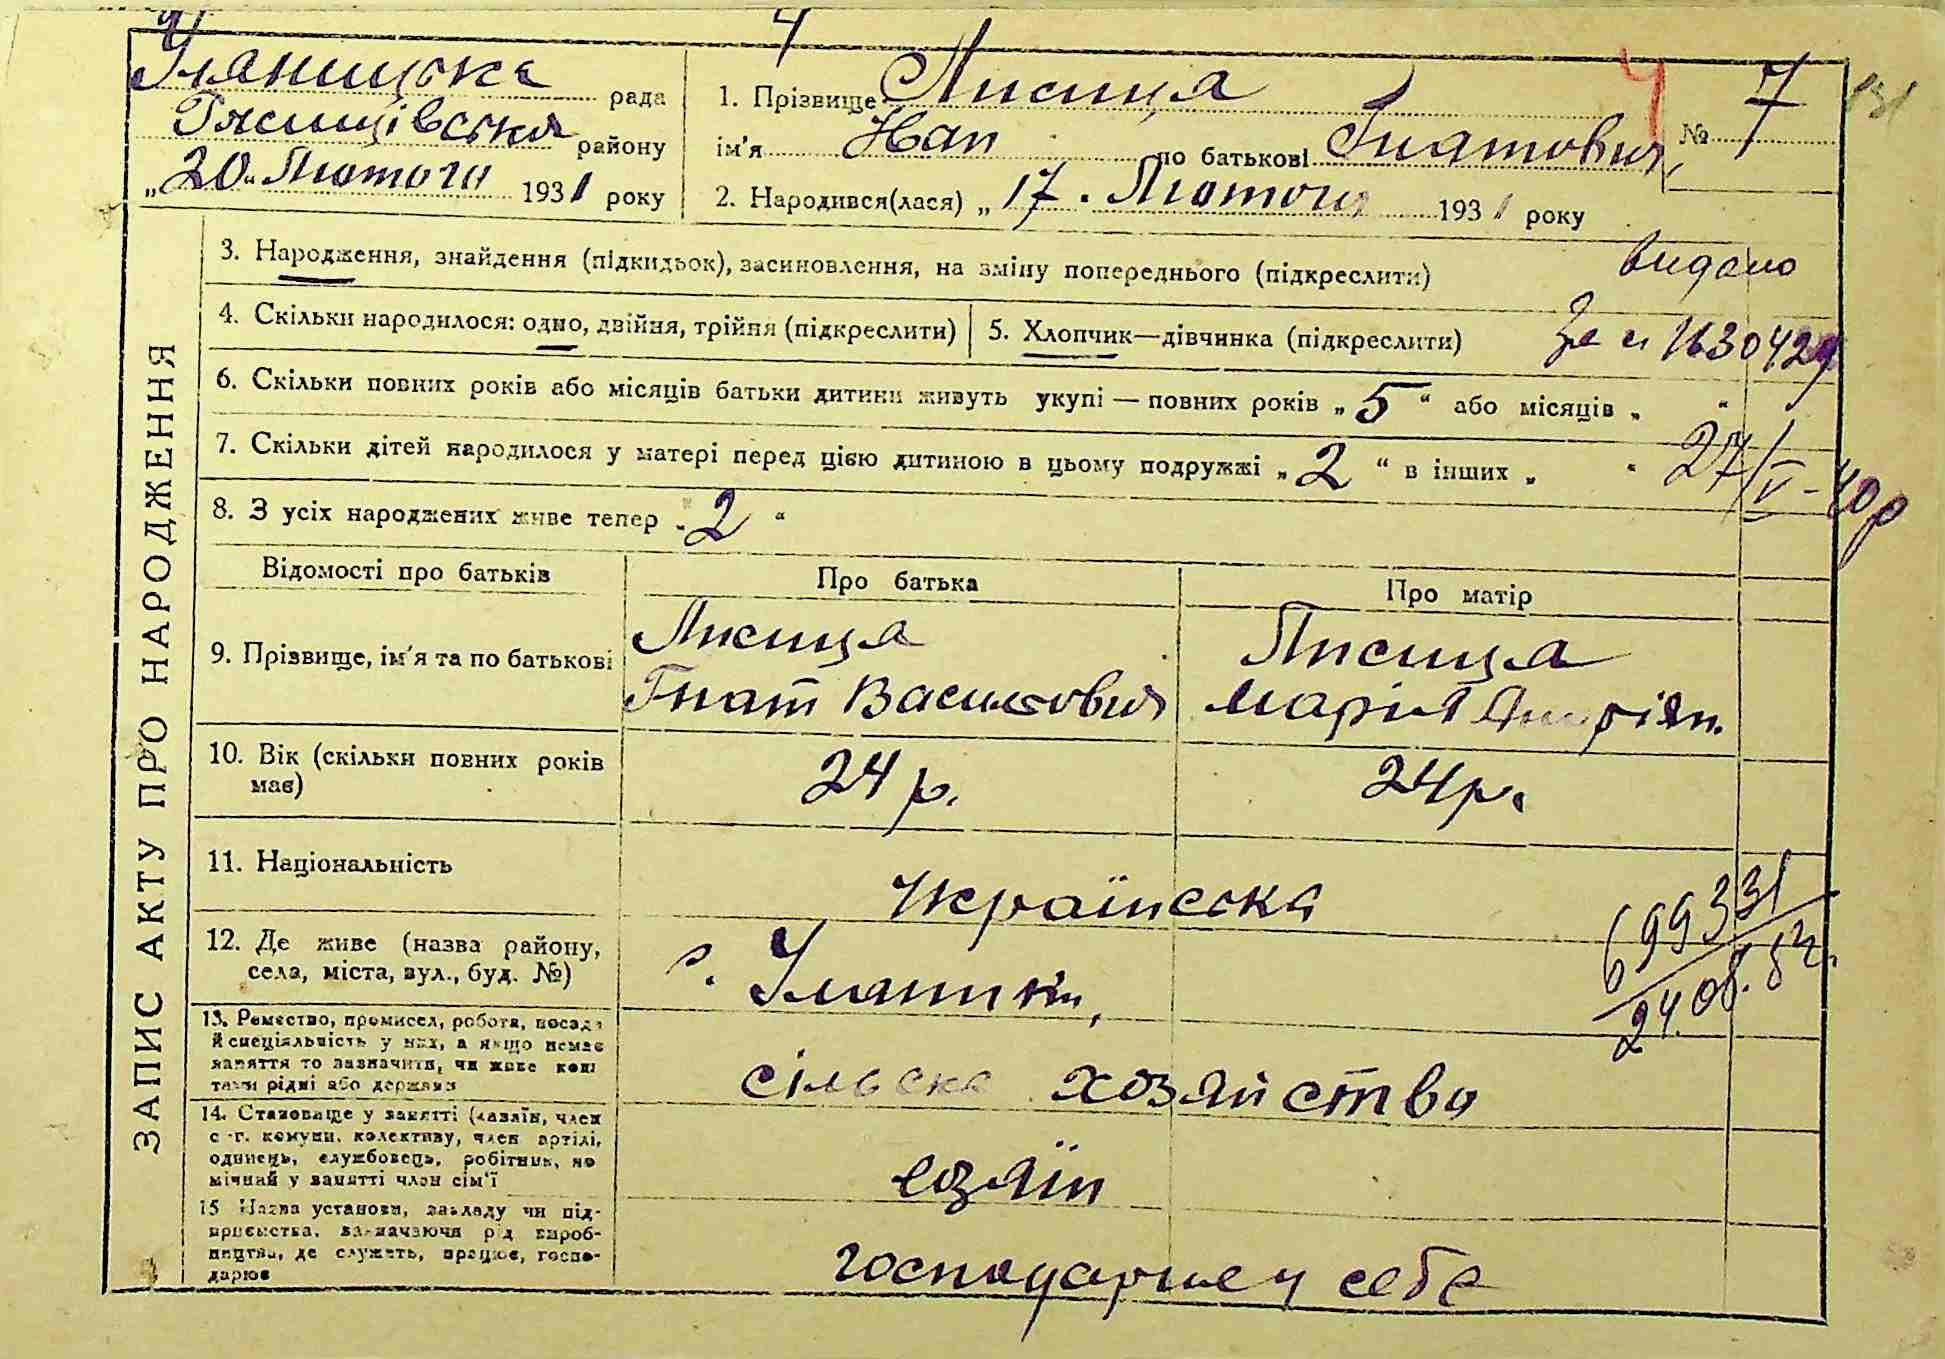 Уланицька рада
району
„20„ Лютого 1931 року
1. Прізвище Лисиця
ім'я Нап по батькові Гнатович
№ 7
131
2. Народився(лася) „17. Лютого 1931 року
ЗАПИС АКТУ ПРО НАРОДЖЕННЯ
3. Народження, знайдення (підкидьок), засиновлення, на зміну попереднього (підкреслити)
видано
4. Скільки народилося: одно, двійня, трійня (підкреслити)
5. Хлопчик—дівчинка (підкреслити)
За №
6. Скільки повних років або місяців батьки дитини живуть укупі — повних років „5“ або місяців „ “
7. Скільки дітей народилося у матері перед цією дитиною в цьому подружжі „2“ в інших „ “
27/V-40р
8. З усіх народжених живе тепер „2“
Відомості про батьків
Про батька
Про матір
9. Прізвище, ім'я та по батькові
Лисиця
Гнат Васильович
Лисиця
Марія
10. Вік (скільки повних років має)
24 р.
24 р.
11. Національність
Українська
12. Де живе (назва району,
села, міста, вул., буд. №)
с. Уланики,
699331
24.08.
13. Ремество, промисел, робота, посада
й спеціяльність у них, а якщо немає
заняття то зазначити, чи живе кош
тами рідні або держави
сільске хозяйство
14. Становище у занятті (хазяїн, член
с.-г. комуни, колективу, член артілі,
одинець, службовець, робітник, по
мічний у занятті член сім'ї
хозяїн
15 Назва установи, закладу чи під-
приємства, зазначаючи рід вироб-
ництва, де служить, працює, госпо-
дарює
господарює у себе